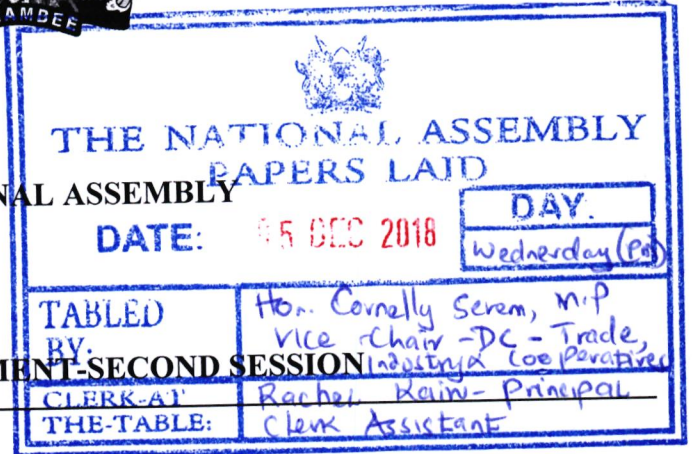 THE NATIONAL ASSEMBLY
PAPERS LAID
NAL ASSEMBLY
DATE: 5 DEC 2018
DAY.
Wednesday (Pm)
TABLED BY:
Hon. Cornelly Serem, M.P
Vice Chair - DC - Trade,
Industry & Cooperatives
MENT-SECOND SESSION
CLERK-AT THE-TABLE:
Rachel Kairu - Principal
Clerk Assistant